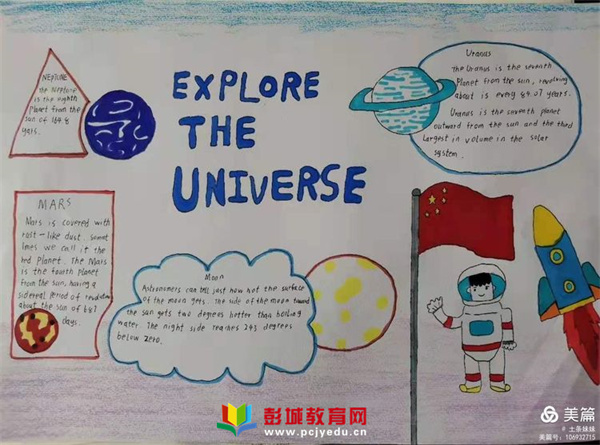 EXPLORE
THE
UNIVERSE
NEPTUNE
The Neptune
is the eighth
Planet from the
sun of 164.8
yers.
Uranus
The Uranus is the seventh
Planet from the sun, revolving
about is every 84.07 years.
Uranus is the seventh planet
outward from the sun and the third
largest in volume in the solar
system.
MARS
Mars is covered with
rost-like dust. somet
imes we call it the
red Planet. The Mars
is the fourth Planet
from the sun, having a
sidereal Period of revolution
about the sun of 687
days.
Moon
Astronomers can tell just how hot the surface
of the moon gets. The side of the moon toward
the sun gets two degrees hotter than boiling
water. The night side reaches 243 degrees
below zero.
彭城教育网
www.pcjyedu.cn
美篇
土条妹妹
美篇号: 106932715